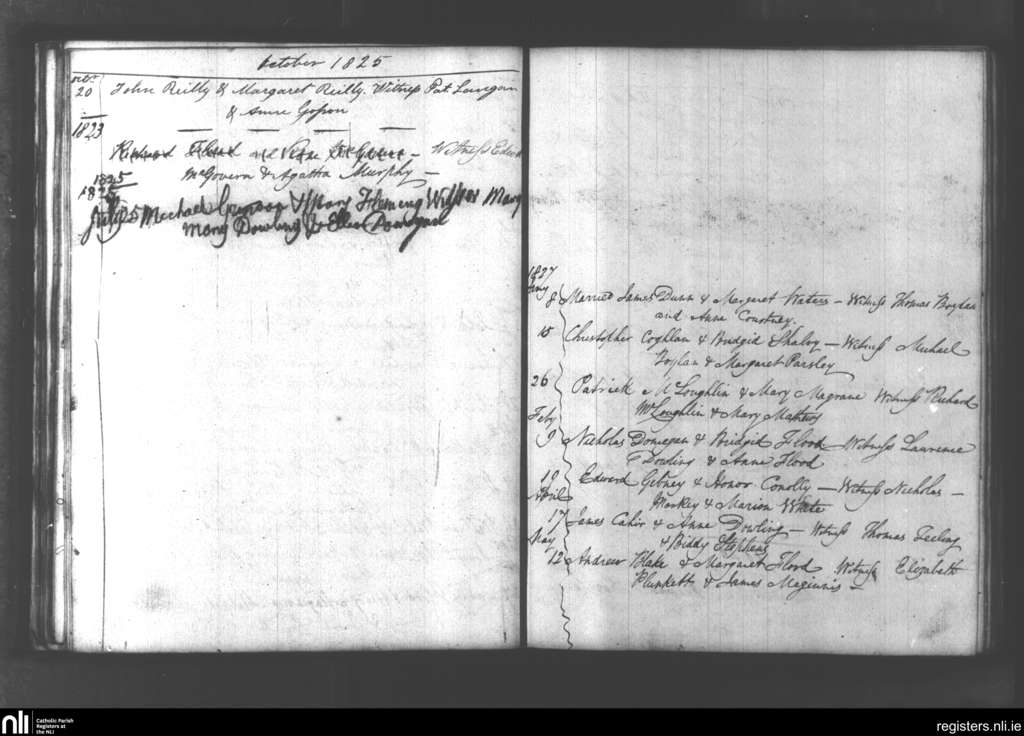 October 1825
Octr
20 John Reilly & Margaret Reilly. Witness Pat Lanigan
& Anne
1823
Witness Edwd
McGovern & Agatha Murphy
1825
1825
July 25 Michael & Mary Fleming Mary
Mary Dowling & Ellen
1827
Jany
8 Married James Dunn & Margaret Waters - Witness Thomas
and Anne Courtney.
15 Christopher Coghlan & Bridgid Shalvy - Witness Michael
& Margaret Parsley
26 Patrick McLoughlin & Mary Magrane Witness Richard
McLoughlin & Mary Mathews
Feby
9 Nicholas Donegan & Bridgid Flood - Witness Lawrence
Dowling & Anne Flood
19 Edward Gebney & Honor Conolly - Witness Nicholas -
Markey & Marion White
April
17 James Cahir & Anne Dowling - Witness Thomas Feeling
& Biddy Stephens
May
12 Andrew Blake & Margaret Flood Witness Elizabeth
Plunkett & James Maginnis -
nli
Catholic Parish
Registers at
the NLI
registers.nli.ie